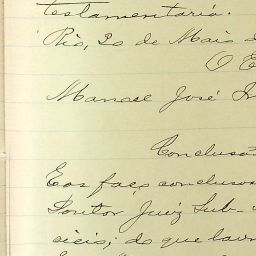 testamentaria.
Rio, 20 de Maio
O E
Manoel José
Conclusão
E os faço conclusos
Doutor Juiz Sub-
cicio; do que lavr